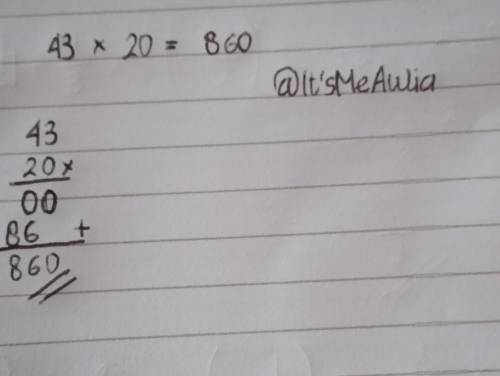 43 × 20 = 860
@It'sMeAulia
43
20 ×
00
86 +
860